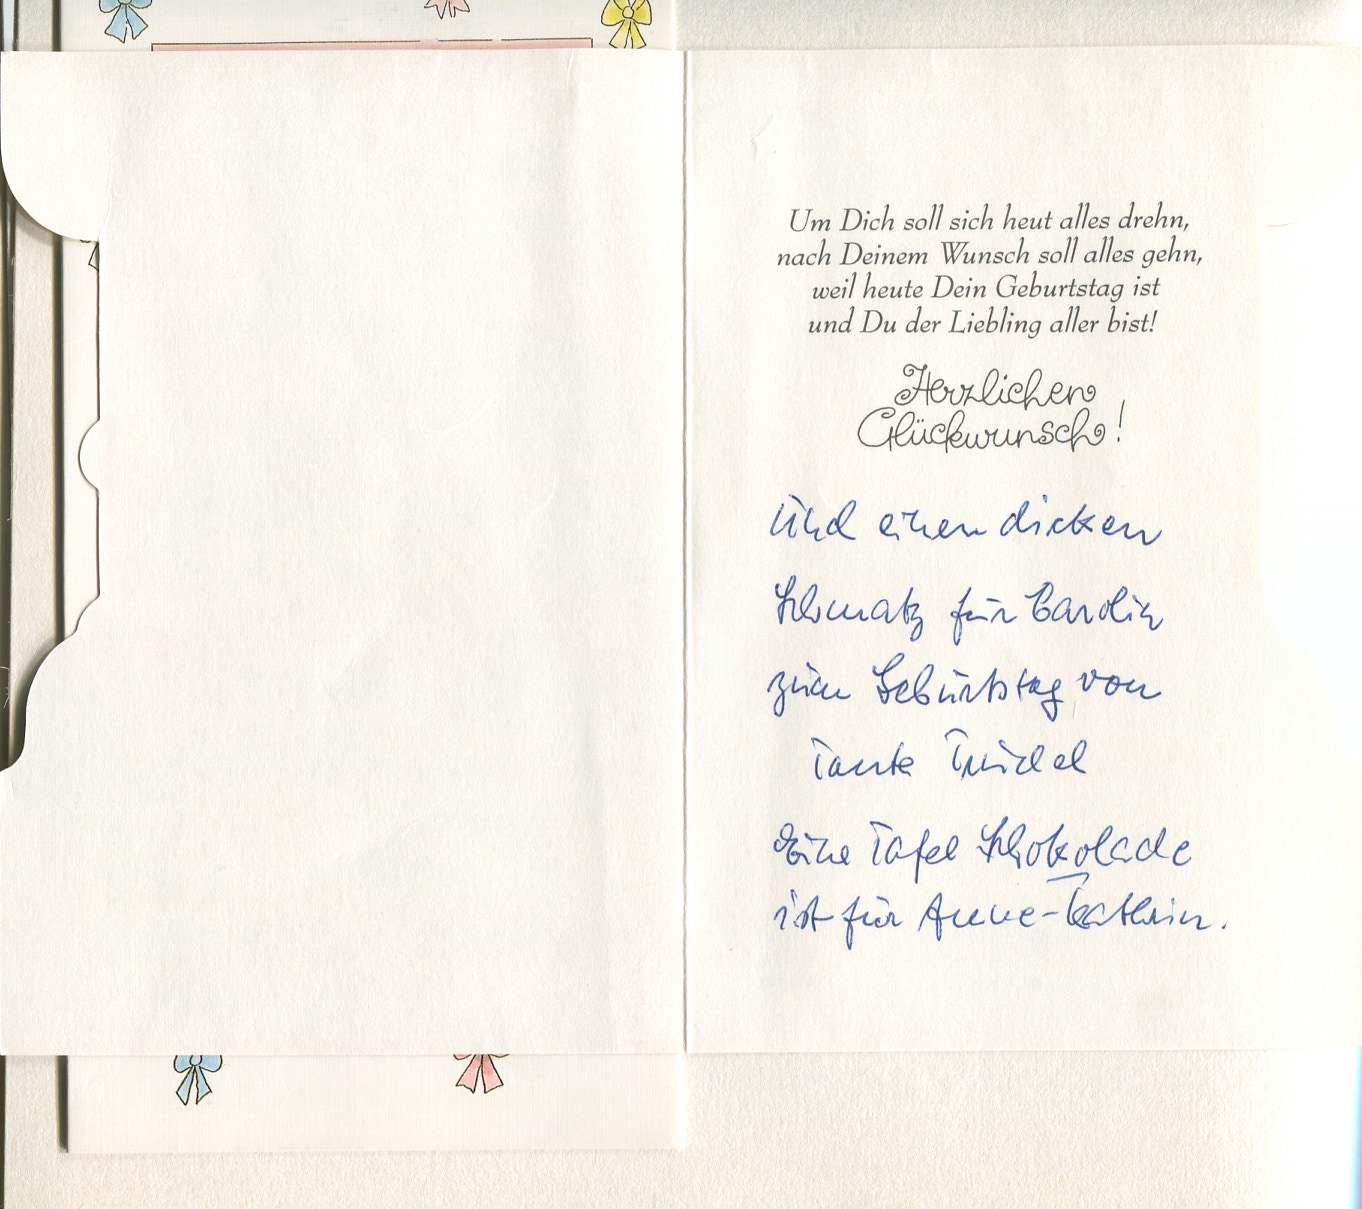 Um Dich soll sich heut alles drehn,
nach Deinem Wunsch soll alles gehn,
weil heute Dein Geburtstag ist
und Du der Liebling aller bist!
Herzlichen
Glückwunsch!
Und einen dicken
Schmatz für Carolin
zum Geburtstag von
Tante Trudel
Eine Tafel Schokolade
ist für Anne-Kathrin.